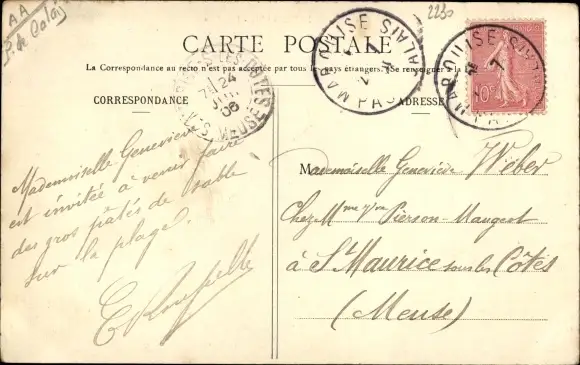 AA
P. de Calais
2230
CARTE POSTALE
La Correspondance au recto n'est pas acceptée par tous les pays étrangers. (Se renseigner à la
CORRESPONDANCE
ADRESSE
MARQUISE
PAS CALAIS
MARQUISE
CALAIS
10c
24
08
MEUSE
Mademoiselle Geneviève
est invitée à venir faire
des gros pâtés de sable
sur la plage.
Mademoiselle Geneviève Wéber
Chez Mme Vve Pierson-Maugent
à St Maurice sous les Côtes
(Meuse)